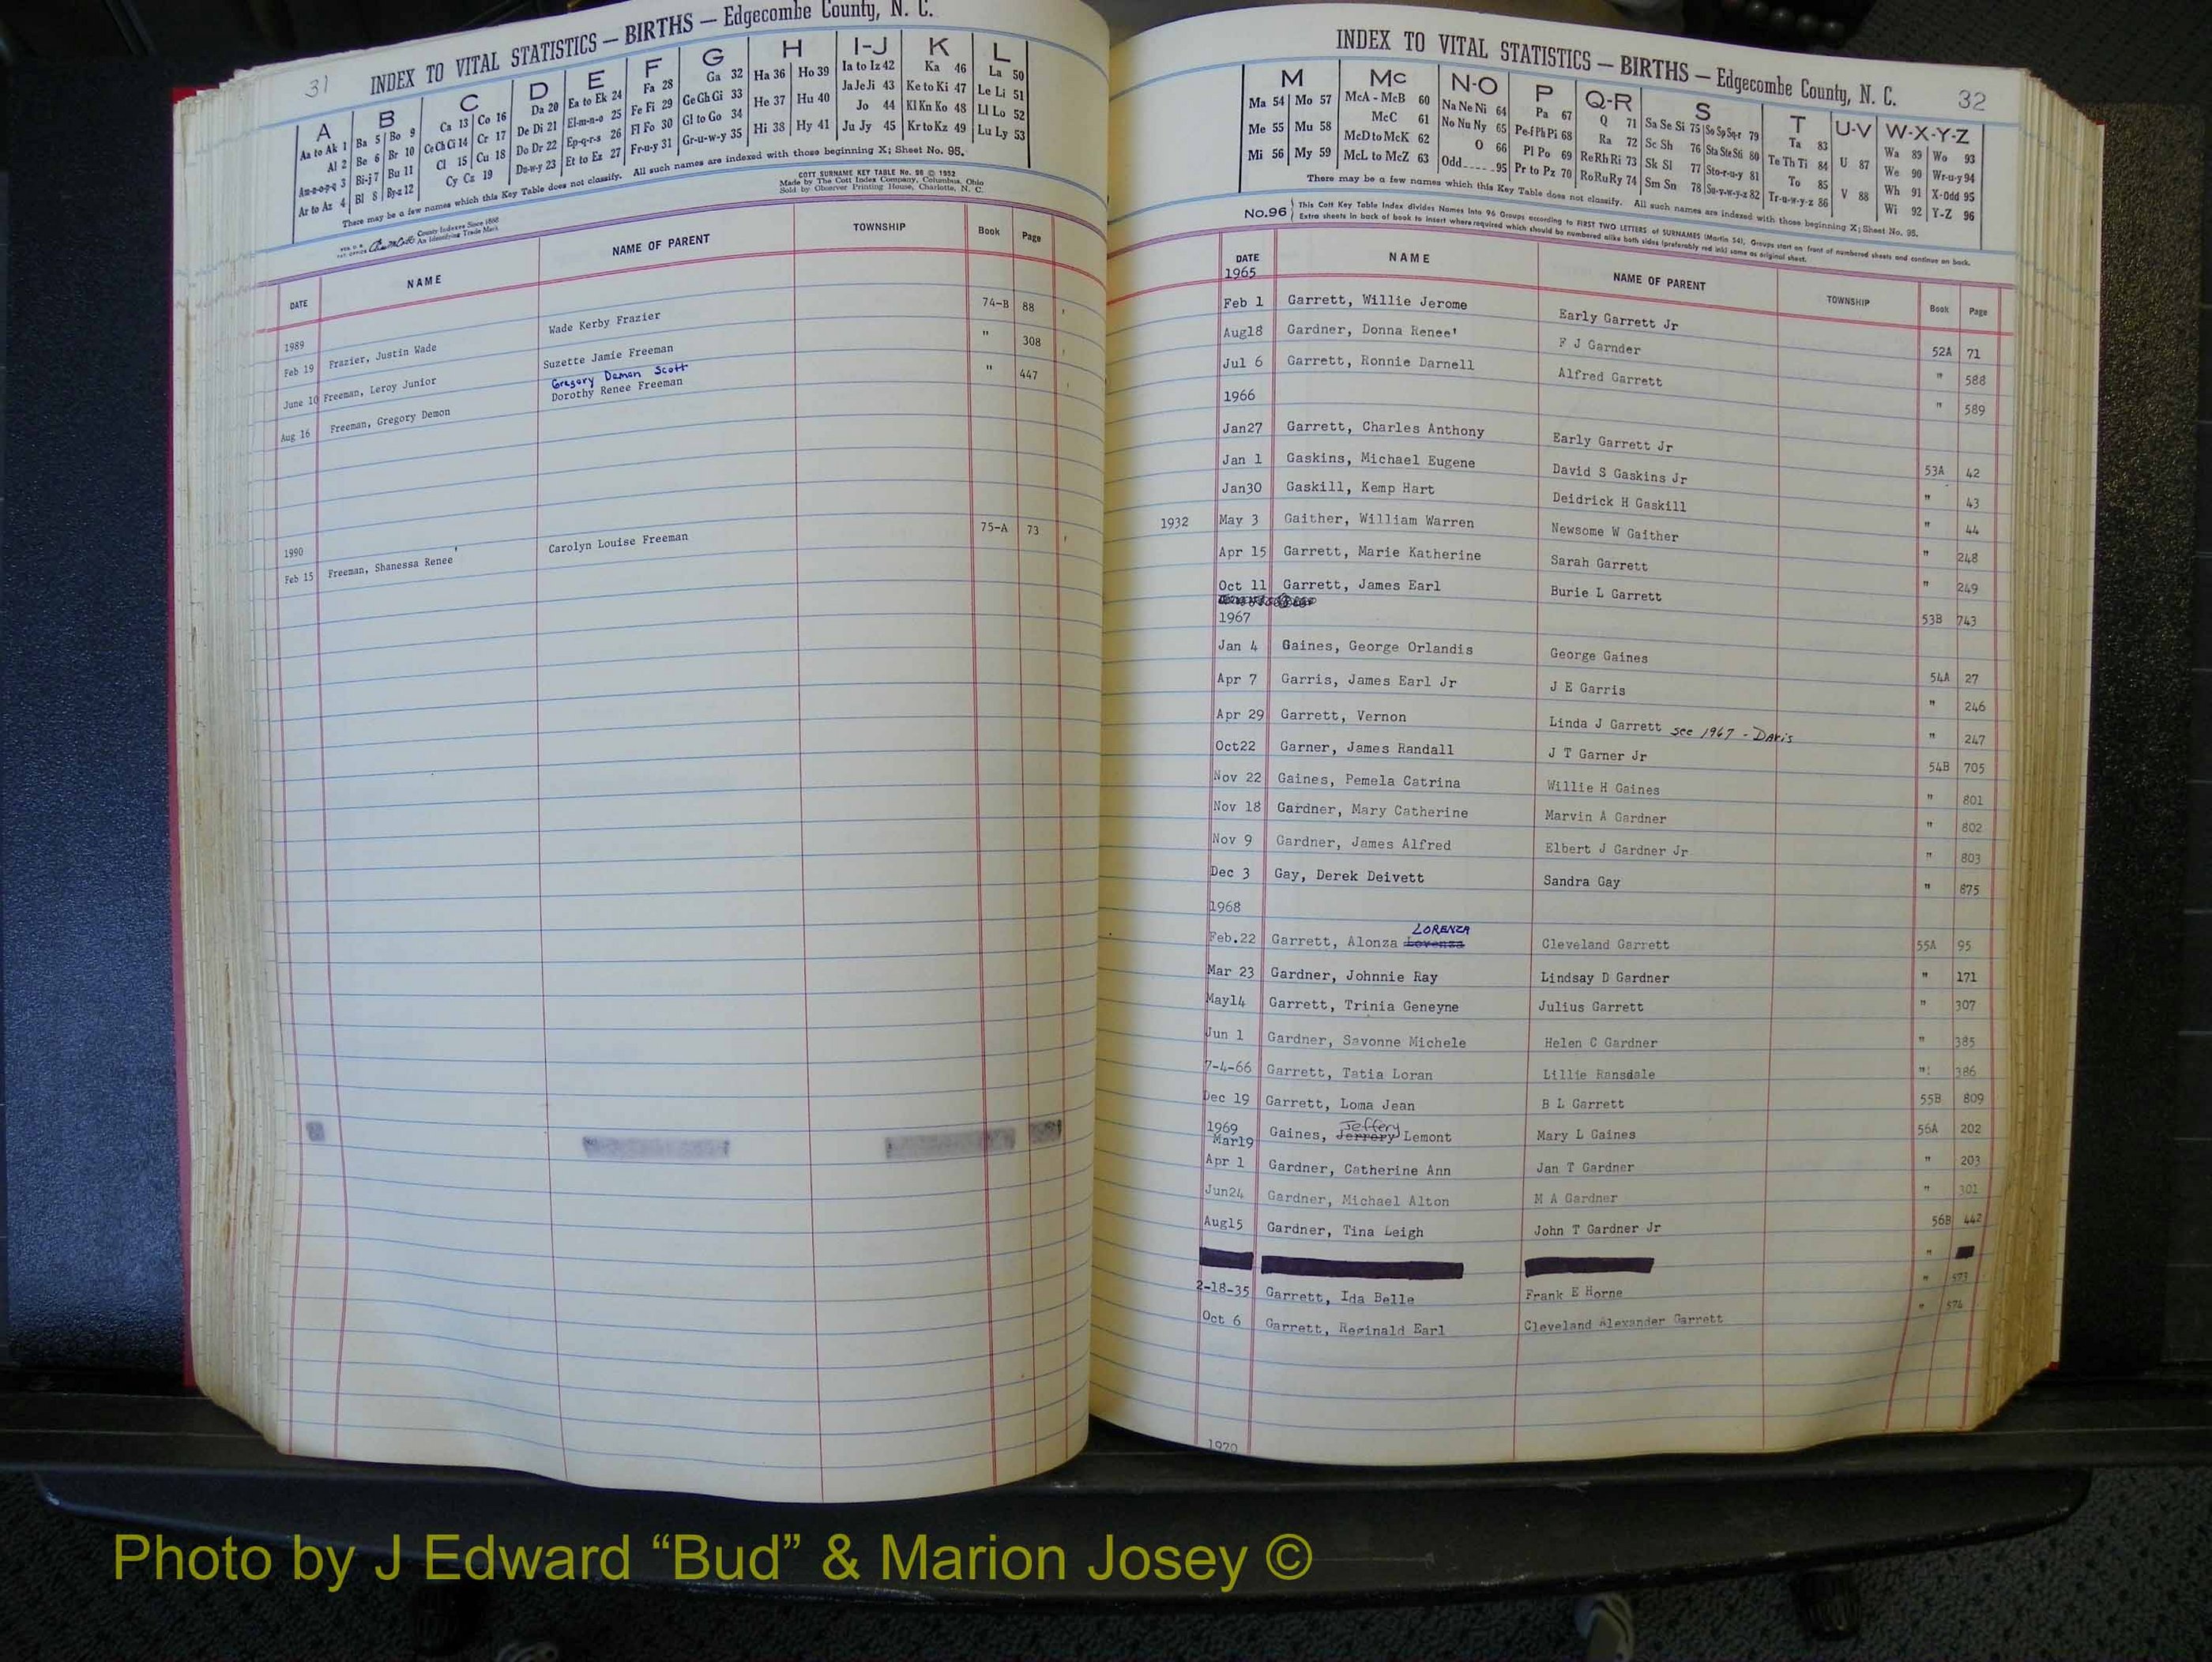 31
INDEX TO VITAL STATISTICS — BIRTHS — Edgecombe County, N. C.
A B C D E F G H I-J K L
Aa to Ak 1 Ba 5 Bo 9 Ca 13 Co 16 Da 20 Ea to Ek 24 Fa 28 Ga 32 Ha 36 Ho 39 Ia to Iz 42 Ka 46 La 50
Al 2 Be 6 Br 10 Ce Ch Ci 14 Cr 17 De Di 21 El-m-n-o 25 Fe Fi 29 Ge Gh Gi 33 He 37 Hu 40 Ja Je Ji 43 Ke to Ki 47 Le Li 51
Am-n-o-p-q 3 Bi-j 7 Bu 11 Cl 15 Cu 18 Do Dr 22 Ep-q-r-s 26 Fl Fo 30 Gl to Go 34 Hi 38 Hy 41 Jo 44 Kl Kn Ko 48 Ll Lo 52
Ar to Az 4 Bl 8 By-z 12 Cy Cz 19 Du-w-y 23 Et to Ez 27 Fr-u-y 31 Gr-u-w-y 35 Ju Jy 45 Kr to Kz 49 Lu Ly 53
There may be a few names which this Key Table does not classify. All such names are indexed with those beginning X; Sheet No. 95.
COTT SURNAME KEY TABLE No. 96 © 1952
Made by The Cott Index Company, Columbus, Ohio
Sold by Observer Printing House, Charlotte, N. C.
County Indexes Since 1888
An Identifying Trade Mark
DATE NAME NAME OF PARENT TOWNSHIP Book Page
1989
Feb 19 Frazier, Justin Wade Wade Kerby Frazier 74-B 88
June 10 Freeman, Leroy Junior Suzette Jamie Freeman " 308
Gregory Demon Scott
Aug 16 Freeman, Gregory Demon Dorothy Renee Freeman " 447
1990
Feb 15 Freeman, Shanessa Renee' Carolyn Louise Freeman 75-A 73
INDEX TO VITAL STATISTICS — BIRTHS — Edgecombe County, N. C.
32
M Mc N-O P Q-R S T U-V W-X-Y-Z
Ma 54 Mo 57 McA - McB 60 Na Ne Ni 64 Pa 67 Q 71 Sa Se Si 75 So Sp Sq-r 79 Ta 83 U 87 Wa 89 Wo 93
Me 55 Mu 58 McC 61 No Nu Ny 65 Pe-f Ph Pi 68 Ra 72 Sc Sh 76 Sta Ste Sti 80 Te Th Ti 84 V 88 We 90 Wr-u-y 94
Mi 56 My 59 McD to McK 62 O 66 Pl Po 69 Re Rh Ri 73 Sk Sl 77 Sto-r-u-y 81 To 85 Wh 91 X-Odd 95
McL to McZ 63 Odd-----95 Pr to Pz 70 Ro Ru Ry 74 Sm Sn 78 Su-v-w-y-z 82 Tr-u-w-y-z 86 Wi 92 Y-Z 96
There may be a few names which this Key Table does not classify. All such names are indexed with those beginning X; Sheet No. 95.
No.96 This Cott Key Table Index divides Names into 96 Groups according to FIRST TWO LETTERS of SURNAMES (Martin 54). Groups start on front of numbered sheets and continue on back.
Extra sheets in back of book to insert where required which should be numbered alike both sides (preferably red ink) same as original sheet.
DATE NAME NAME OF PARENT TOWNSHIP Book Page
1965
Feb 1 Garrett, Willie Jerome Early Garrett Jr 52A 71
Aug18 Gardner, Donna Renee' F J Garnder " 588
Jul 6 Garrett, Ronnie Darnell Alfred Garrett " 589
1966
Jan27 Garrett, Charles Anthony Early Garrett Jr 53A 42
Jan 1 Gaskins, Michael Eugene David S Gaskins Jr " 43
Jan30 Gaskill, Kemp Hart Deidrick H Gaskill " 44
1932 May 3 Gaither, William Warren Newsome W Gaither " 248
Apr 15 Garrett, Marie Katherine Sarah Garrett " 249
Oct 11 Garrett, James Earl Burie L Garrett 53B 743
1967
Jan 4 Gaines, George Orlandis George Gaines 54A 27
Apr 7 Garris, James Earl Jr J E Garris " 246
Apr 29 Garrett, Vernon Linda J Garrett see 1967 - Davis " 247
Oct22 Garner, James Randall J T Garner Jr 54B 705
Nov 22 Gaines, Pemela Catrina Willie H Gaines " 801
Nov 18 Gardner, Mary Catherine Marvin A Gardner " 802
Nov 9 Gardner, James Alfred Elbert J Gardner Jr " 803
Dec 3 Gay, Derek Deivett Sandra Gay " 875
1968
LORENZA
Feb.22 Garrett, Alonza Lovenza Cleveland Garrett 55A 95
Mar 23 Gardner, Johnnie Ray Lindsay D Gardner " 171
May14 Garrett, Trinia Geneyne Julius Garrett " 307
Jun 1 Gardner, Savonne Michele Helen C Gardner " 385
7-4-66 Garrett, Tatia Loran Lillie Ransdale " 386
Dec 19 Garrett, Loma Jean B L Garrett 55B 809
1969
Jeffery
Mar19 Gaines, Jerrory Lemont Mary L Gaines 56A 202
Apr 1 Gardner, Catherine Ann Jan T Gardner " 203
Jun24 Gardner, Michael Alton M A Gardner " 301
Aug15 Gardner, Tina Leigh John T Gardner Jr 56B 442
"
2-18-35 Garrett, Ida Belle Frank E Horne " 573
Oct 6 Garrett, Reginald Earl Cleveland Alexander Garrett " 574
1970
Photo by J Edward “Bud” & Marion Josey ©